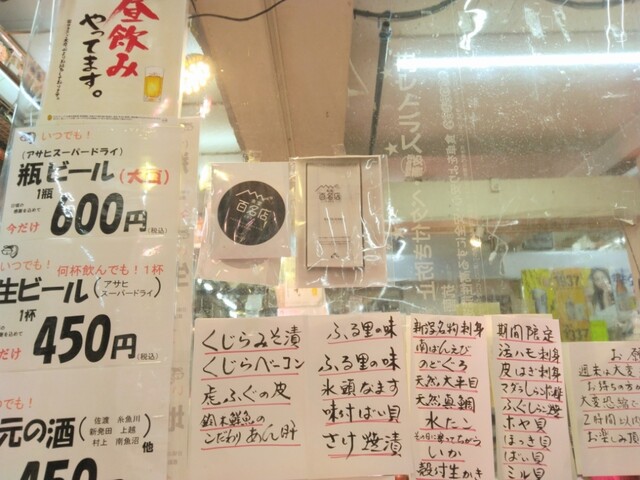 昼飲み
やってます。
いつでも！
(アサヒスーパードライ)
瓶ビール(大瓶)
1瓶
今だけ
600円(税込)
いつでも！
何杯飲んでも！1杯
生ビール(アサヒ
スーパードライ)
1杯
450円(税込)
元の酒
佐渡 糸魚川
新発田 上越
村上 南魚沼
他
450
百名店
百名店
くじらみそ漬
くじらベーコン
虎ふぐの皮
鈴木鮮魚の
こだわりあん肝
ふる里の味
ふる里の味
氷頭なます
味付ばい貝
さけ焼漬
新潟名物刺身
南ばんえび
のどぐろ
天然大平目
天然真鯛
水たこ
いか
殻付生かき
期間限定
活ハモ刺身
皮はぎ刺身
ふぐしらこ
ホヤ貝
ほっき貝
ばい貝
ミル貝
お願
週末は大変
お待ちの方
大変恐縮で
2時間以内
お楽しみ頂